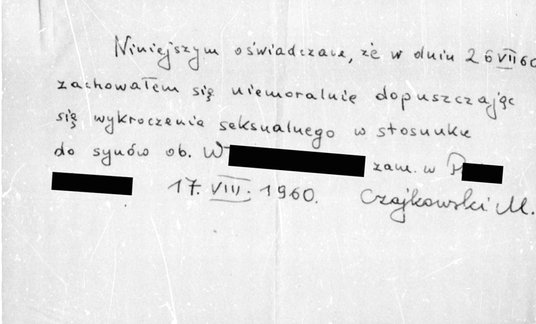 Niniejszym oświadczam, że w dniu 26 VII 60
zachowałem się niemoralnie dopuszczając
się wykroczenia seksualnego w stosunku
do synów ob. W
zam. w P
17. VIII. 1960. Czajkowski M.